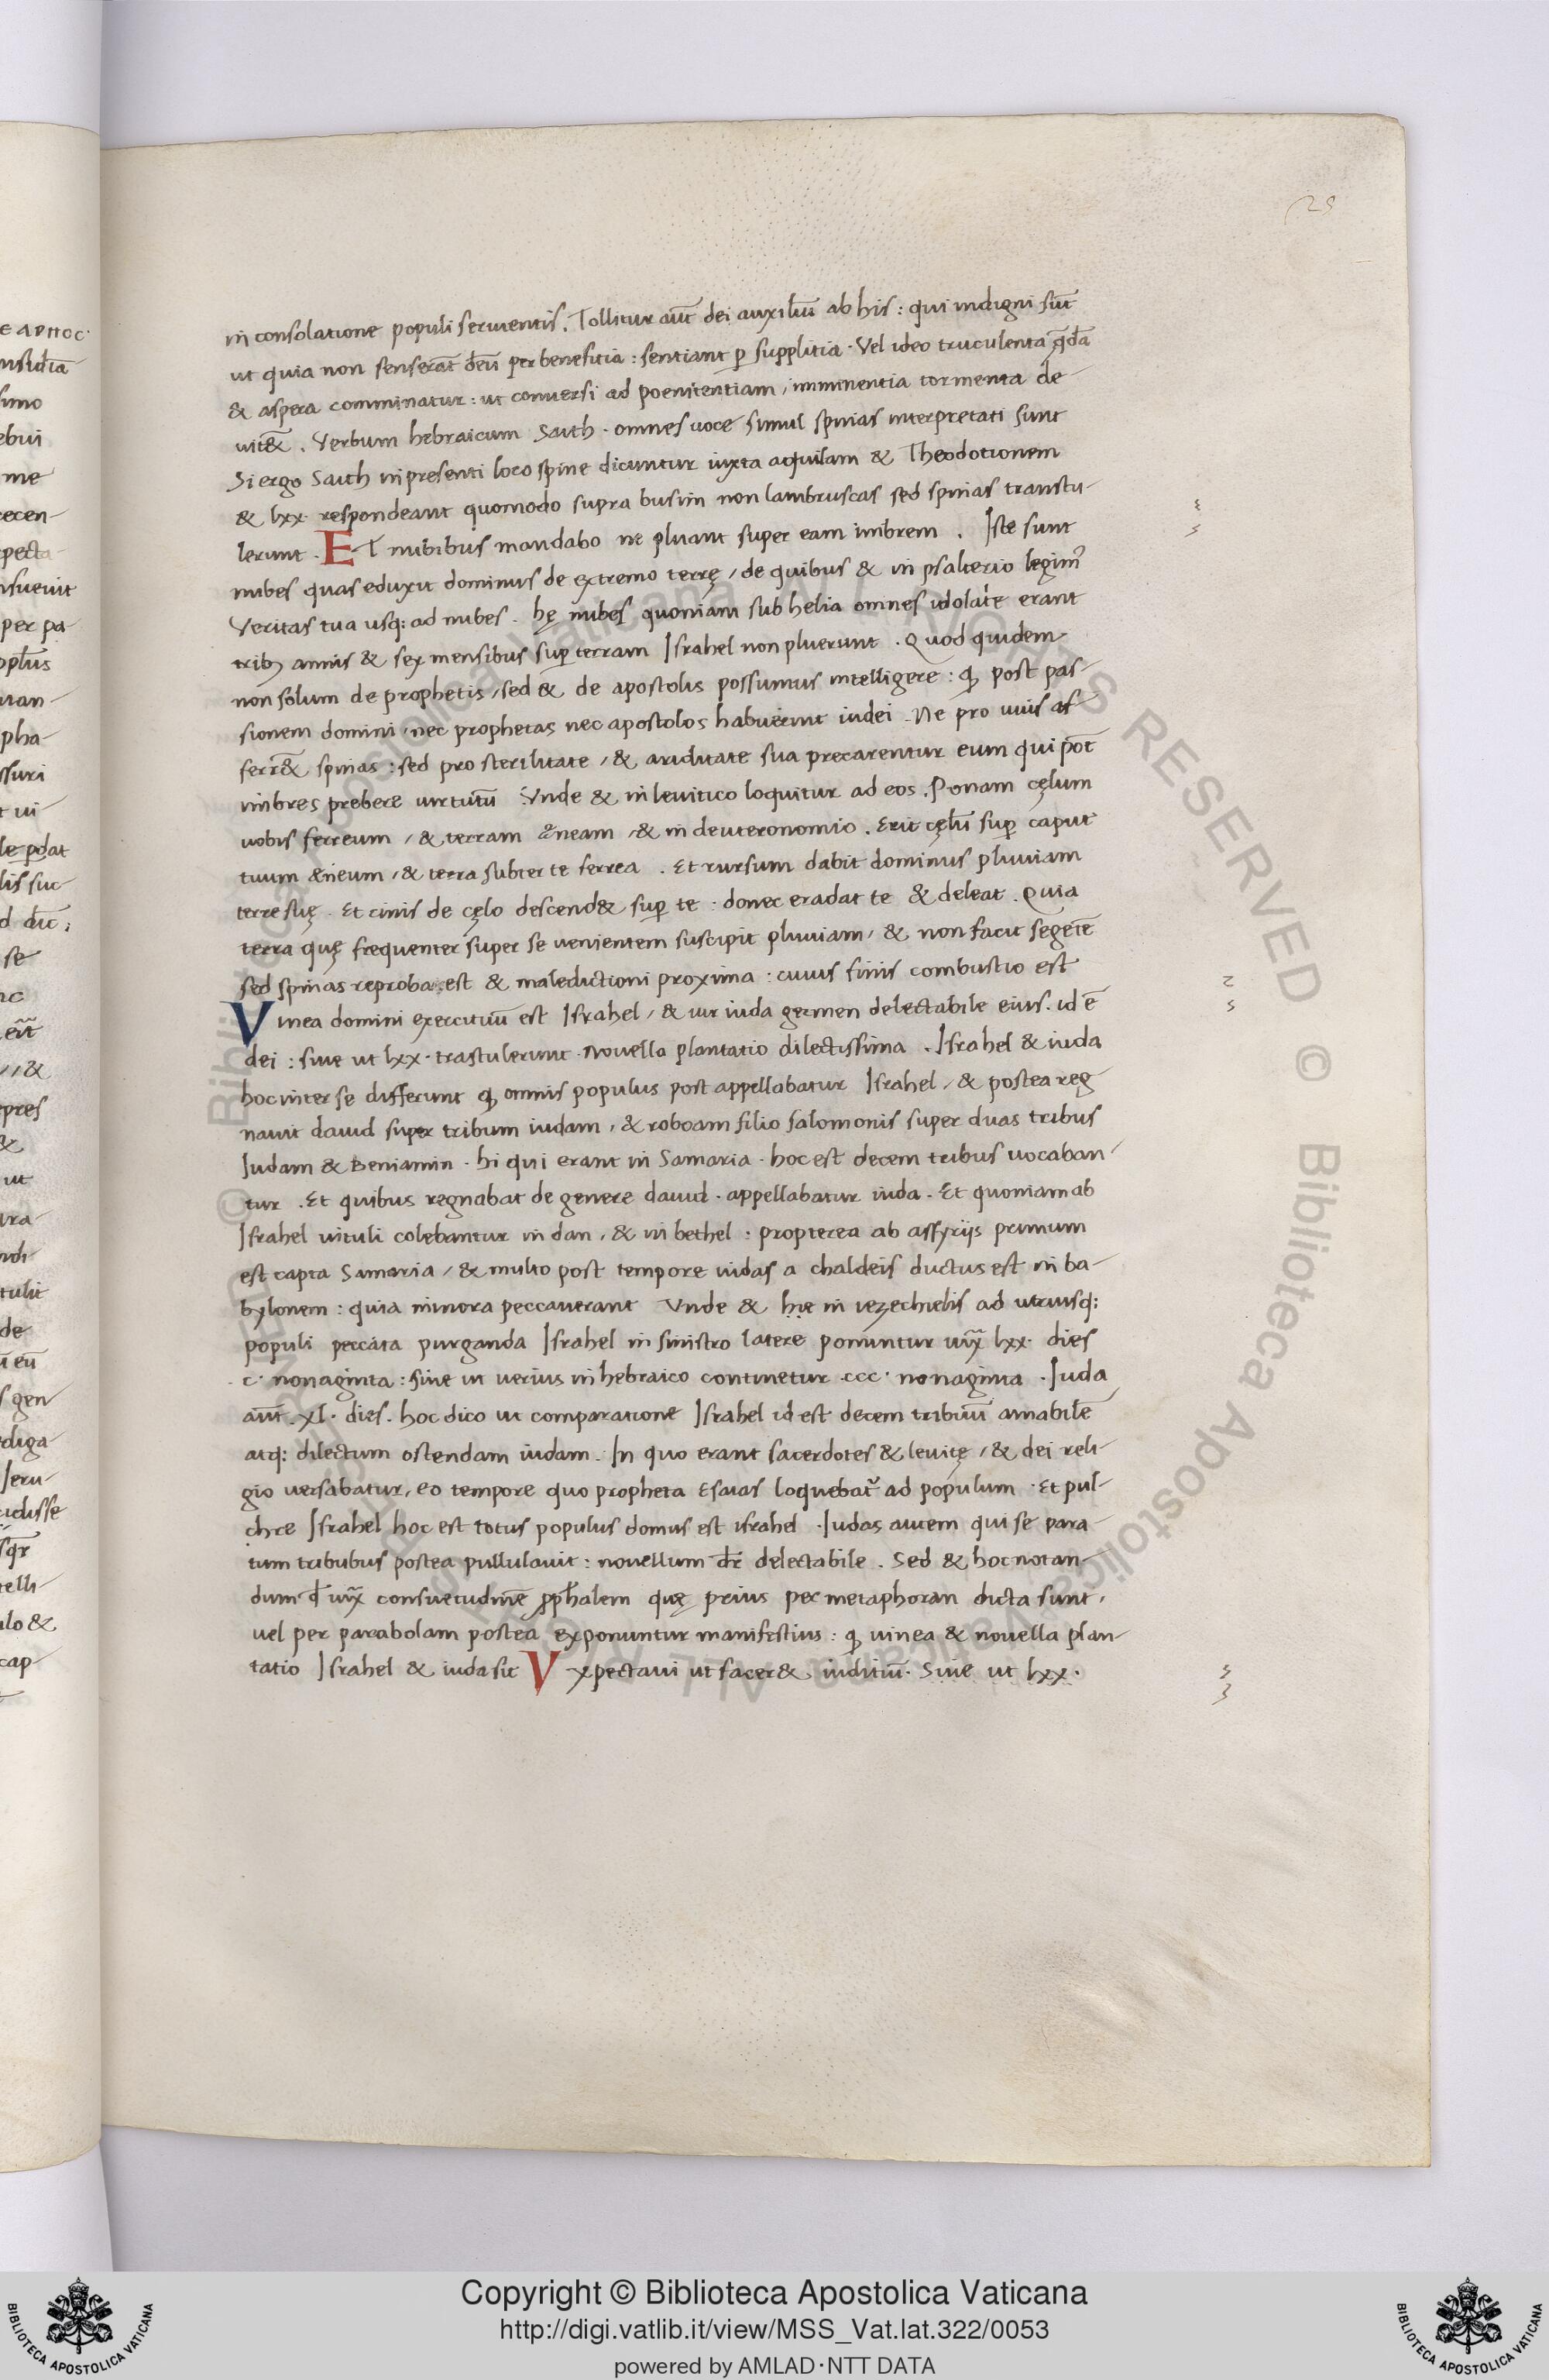 25
in consolatione populi seruientis. Tollitur aut̄ dei auxiliū ab his: qui indigni sūt
ut quia non senserāt deū per benefitia: sentiant p̱ supplitia. Vel ideo truculenta q̄dā
& aspera comminatur: ut conuersi ad poenitentiam, imminentia tormenta de-
uit&. Verbum hebraicum Saith. omnes uoce simul spinas interpretati sunt
Si ergo Saith in presenti loco spine dicuntur iuxta aquilam & Theodotionem
& lxx respondeant quomodo supra busim non lambruscas sed spinas transtu-
lerunt. ET nubibus mandabo ne pluant super eam imbrem. Iste sunt
nubes quas eduxit dominus de extremo terrę, de quibus & in psalterio legim᾽
Veritas tua usq; ad nubes. hę nubes quoniam sub helia omnes idolatre erant
trib; annis & sex mensibus sup̱ terram Israhel non pluerunt. Quod quidem
non solum de prophetis, sed & de apostolis possumus intelligere: ꝙ post pas-
sionem domini, nec prophetas nec apostolos habuerint iudei. Ne pro uuis af-
ferr& spinas: sed pro sterilitate, & ariditate sua precarentur eum qui pōt
imbres prebere uirtutū Vnde & in leuitico loquitur ad eos. Ponam cęlum
uobis ferreum, & terram æneam, & in deuteronomio. Erit cęlū sup̱ caput
tuum æneum, & terra subter te ferrea. Et rursum dabit dominus pluuiam
terre suę. Et cinis de cęlo descend& sup̱ te. donec eradat te & deleat. Quia
terra quę frequenter super se uenientem suscipit pluuiam, & non facit segetē
sed spinas reproba est & maledictioni proxima: cuius finis combustio est
Vinea domini exercituū est Israhel, & uir iuda germen delectabile eius. id ē
dei: siue ut lxx. trastulerunt. Nouella plantatio dilectissima. Israhel & iuda
hoc inter se differunt ꝙ omnis populus post appellabatur Israhel, & postea reg
nauit dauid super tribum iudam, & roboam filio salomonis super duas tribus
Iudam & Beniamin. hi qui erant in Samaria. hoc est decem tribus uocaban-
tur. Et quibus regnabat de genere dauid. appellabatur iuda. Et quoniam ab
Israhel uituli colebantur in dan, & in bethel: propterea ab assyrijs primum
est capta Samaria, & multo post tempore iudas a chaldeis ductus est in ba-
bylonem: quia minora peccauerant Vnde & hie in iezechielis ad utriusq;
populi peccata purganda Israhel in sinistro latere ponuntur iux̄ lxx. dies
.c. nonaginta: siue ut uerius in hebraico continetur .ccc. nonaginta. Iuda
aut̄. xl. dies. hoc dico ut comparatione Israhel id est decem tribuū amabilē
atq; dilectum ostendam iudam. In quo erant sacerdotes & leuitę, & dei reli-
gio uersabatur, eo tempore quo propheta Esaias loquebat᾽ ad populum. Et pul-
chre Israhel hoc est totus populus domus est israhel. Iudas autem qui se para-
tum tribubus postea pullulauit: nouellum dr̄ delectabile. Sed & hoc notan-
dum ꝙ iux̄ consuetudinē p̱phalem quę prius per metaphoran dicta sunt,
uel per parabolam postea exponuntur manifestius: ꝙ uinea & nouella plan-
tatio Israhel & iuda sit Vxpectaui ut facer& iuditiū. Siue ut lxx.
Copyright © Biblioteca Apostolica Vaticana
http://digi.vatlib.it/view/MSS_Vat.lat.322/0053
powered by AMLAD·NTT DATA
BIBLIOTECA APOSTOLICA VATICANA
BIBLIOTECA APOSTOLICA VATICANA